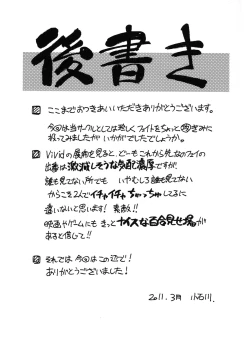 後書き
ここまでおつきあいいただきありがとうございます。
今回は当サークルとしては珍しく フェイトをちょっと㊙ぎみに
扱ってみましたが いかがでしたでしょうか。
Vividの展開を見ると、どーも これから先 なのフェイの
出番は激減しそうな気配濃厚ですが、
誰も見てない所でも いやむしろ誰も見てない
からこそ2人でイチャイチャちゅっちゅしてるに
違いないと思います! 素敵!!
映画やゲームにも きっとナイスな百合見せ場が
あると信じて!!
それでは 今回はこの辺で!
ありがとうございました!
2011.3月 小石川